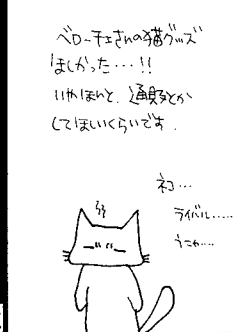 ベローチェさんの猫グッズ
ほしかった…!!
いやほんと、通販とか
してほしいくらいです.
ネコ…
ライバル……
うにゃ……